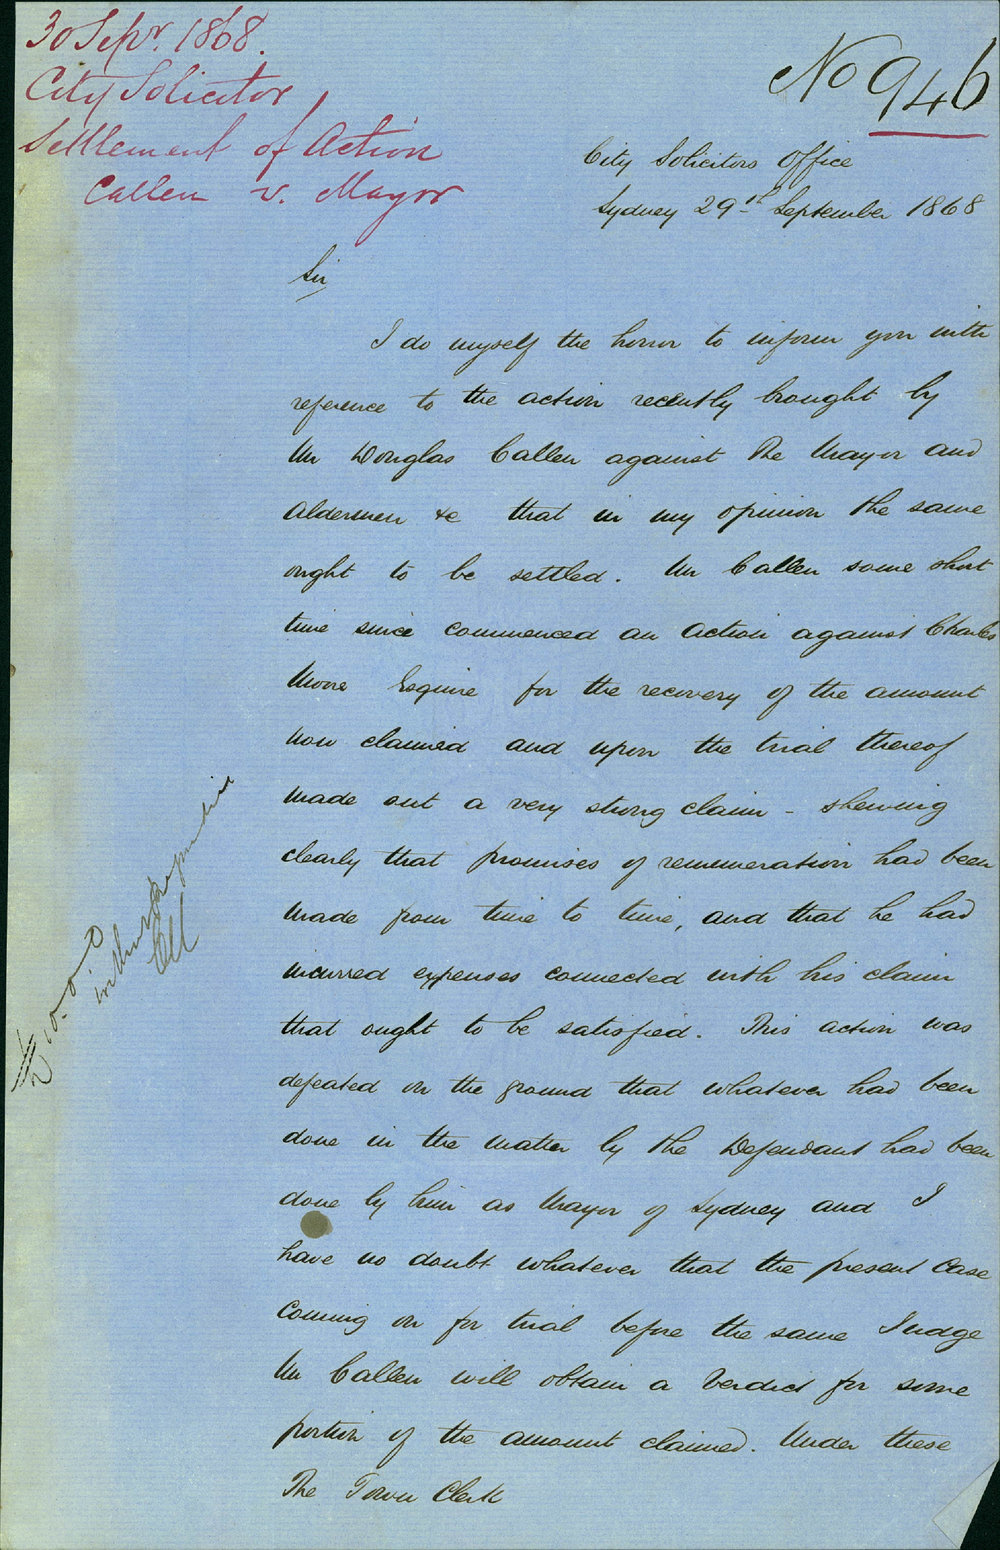 30 Sepr. 1868.
City Solicitor
Settlement of Action
Callen v. Mayor
No 946
City Solicitors Office
Sydney 29th September 1868
Sir
I do myself the honor to inform you with
reference to the action recently brought by
Mr Douglas Callen against The Mayor and
Aldermen &c that in my opinion the same
ought to be settled. Mr Callen some short
time since commenced an action against Charles
Moore Esquire for the recovery of the amount
now claimed and upon the trial thereof
made out a very strong claim - shewing
clearly that promises of remuneration had been
made from time to time, and that he had
incurred expenses connected with his claim
that ought to be satisfied. This action was
defeated on the ground that whatever had been
done in the matter by the Defendant had been
done by him as Mayor of Sydney and I
have no doubt whatever that the present case
coming on for trial before the same Judge
Mr Callen will obtain a verdict for some
portion of the amount claimed. Under these
The Town Clerk